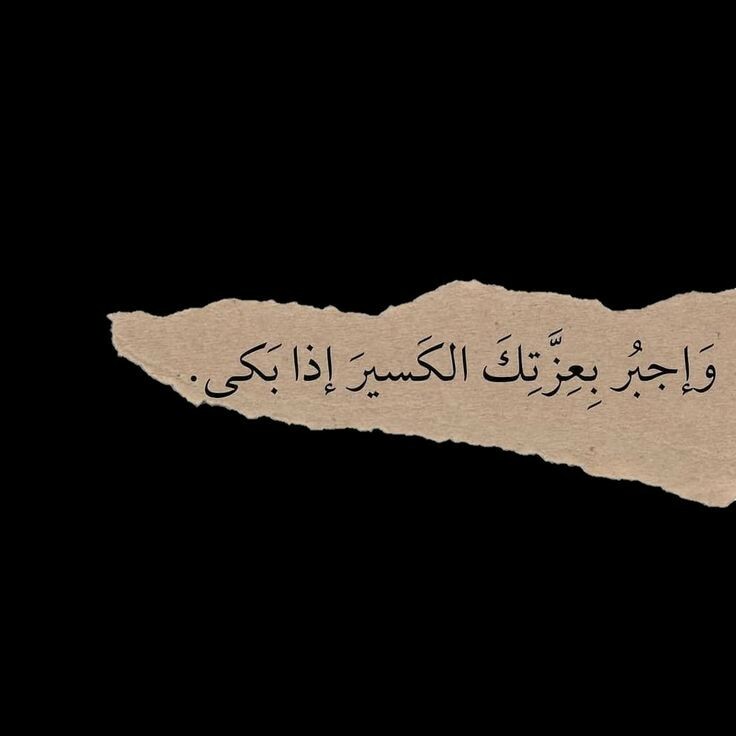 وَإجبُر بِعِزَّتِكَ الكَسيرَ إذا بَكى.